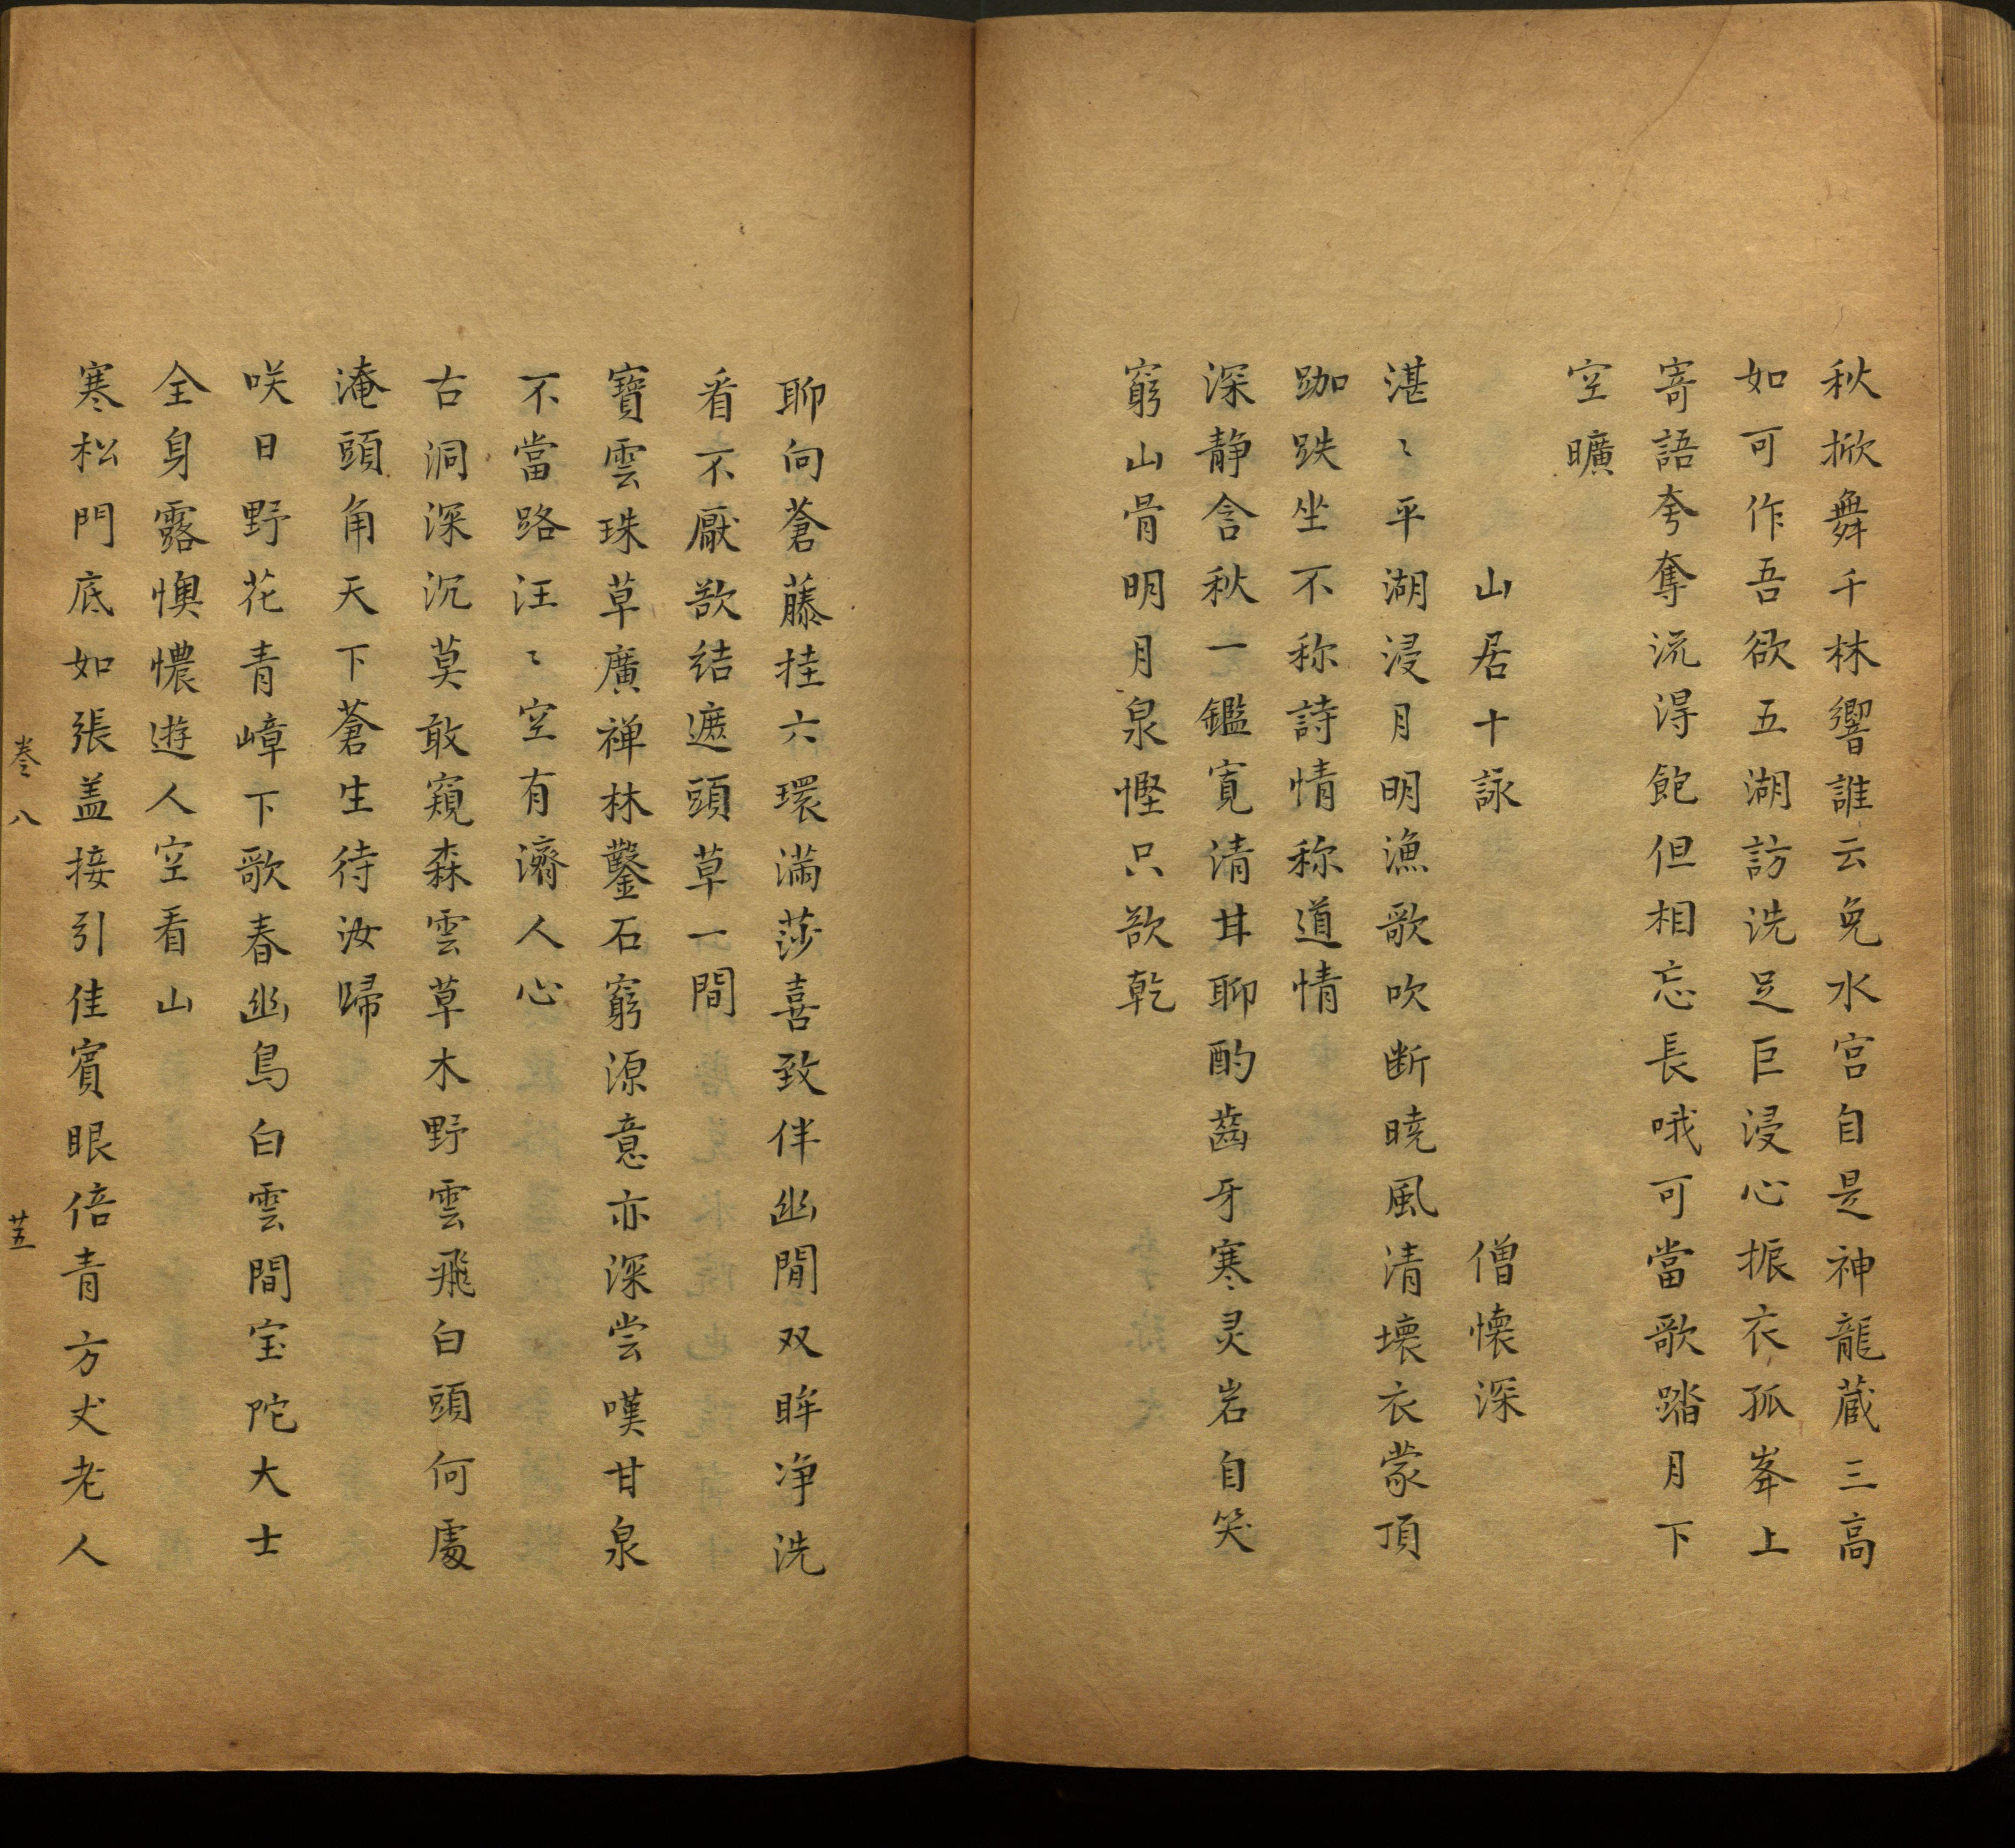 秋掀舞千林響誰云兔水宫自是神龍蔵三高
如可作吾欲五湖訪洗足巨浸心振衣孤峯上
寄語夸奪流淂飽但相忘長哦可當歌踏月下
空曠
山居十詠　僧懐深
湛〻平湖浸月明漁歌吹断暁風清壊衣蒙頂
跏趺坐不称詩情称道情
深静含秋一鑑寛清甘聊酌齒牙寒灵岩自笑
窮山骨明月泉慳只欲乾
聊向蒼藤挂六環滿莎喜致伴幽閒双眸净洗
看不厭欲结遮頭草一間
寶雲珠草廣禅林鑿石窮源意亦深尝嘆甘泉
不當路汪〻空有濟人心
古洞深沉莫敢窺森雲草木野雲飛白頭何處
淹頭角天下蒼生待汝歸
咲日野花青嶂下歌春幽鳥白雲間宝陀大士
全身露懊憹遊人空看山
寒松門底如張盖接引佳賓眼倍青方丈老人
卷八　廿五